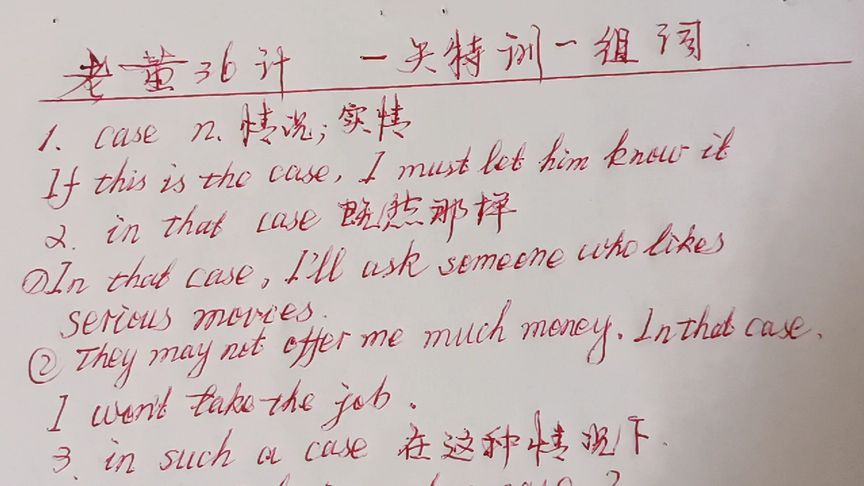 老董36计 一天特训一组词
1. case n. 情况；实情
If this is the case, I must let him know it
2. in that case 既然那样
①In that case, I'll ask someone who likes
serious movies.
② They may not offer me much money. In that case,
I won't take the job.
3. in such a case 在这种情况下.
case?